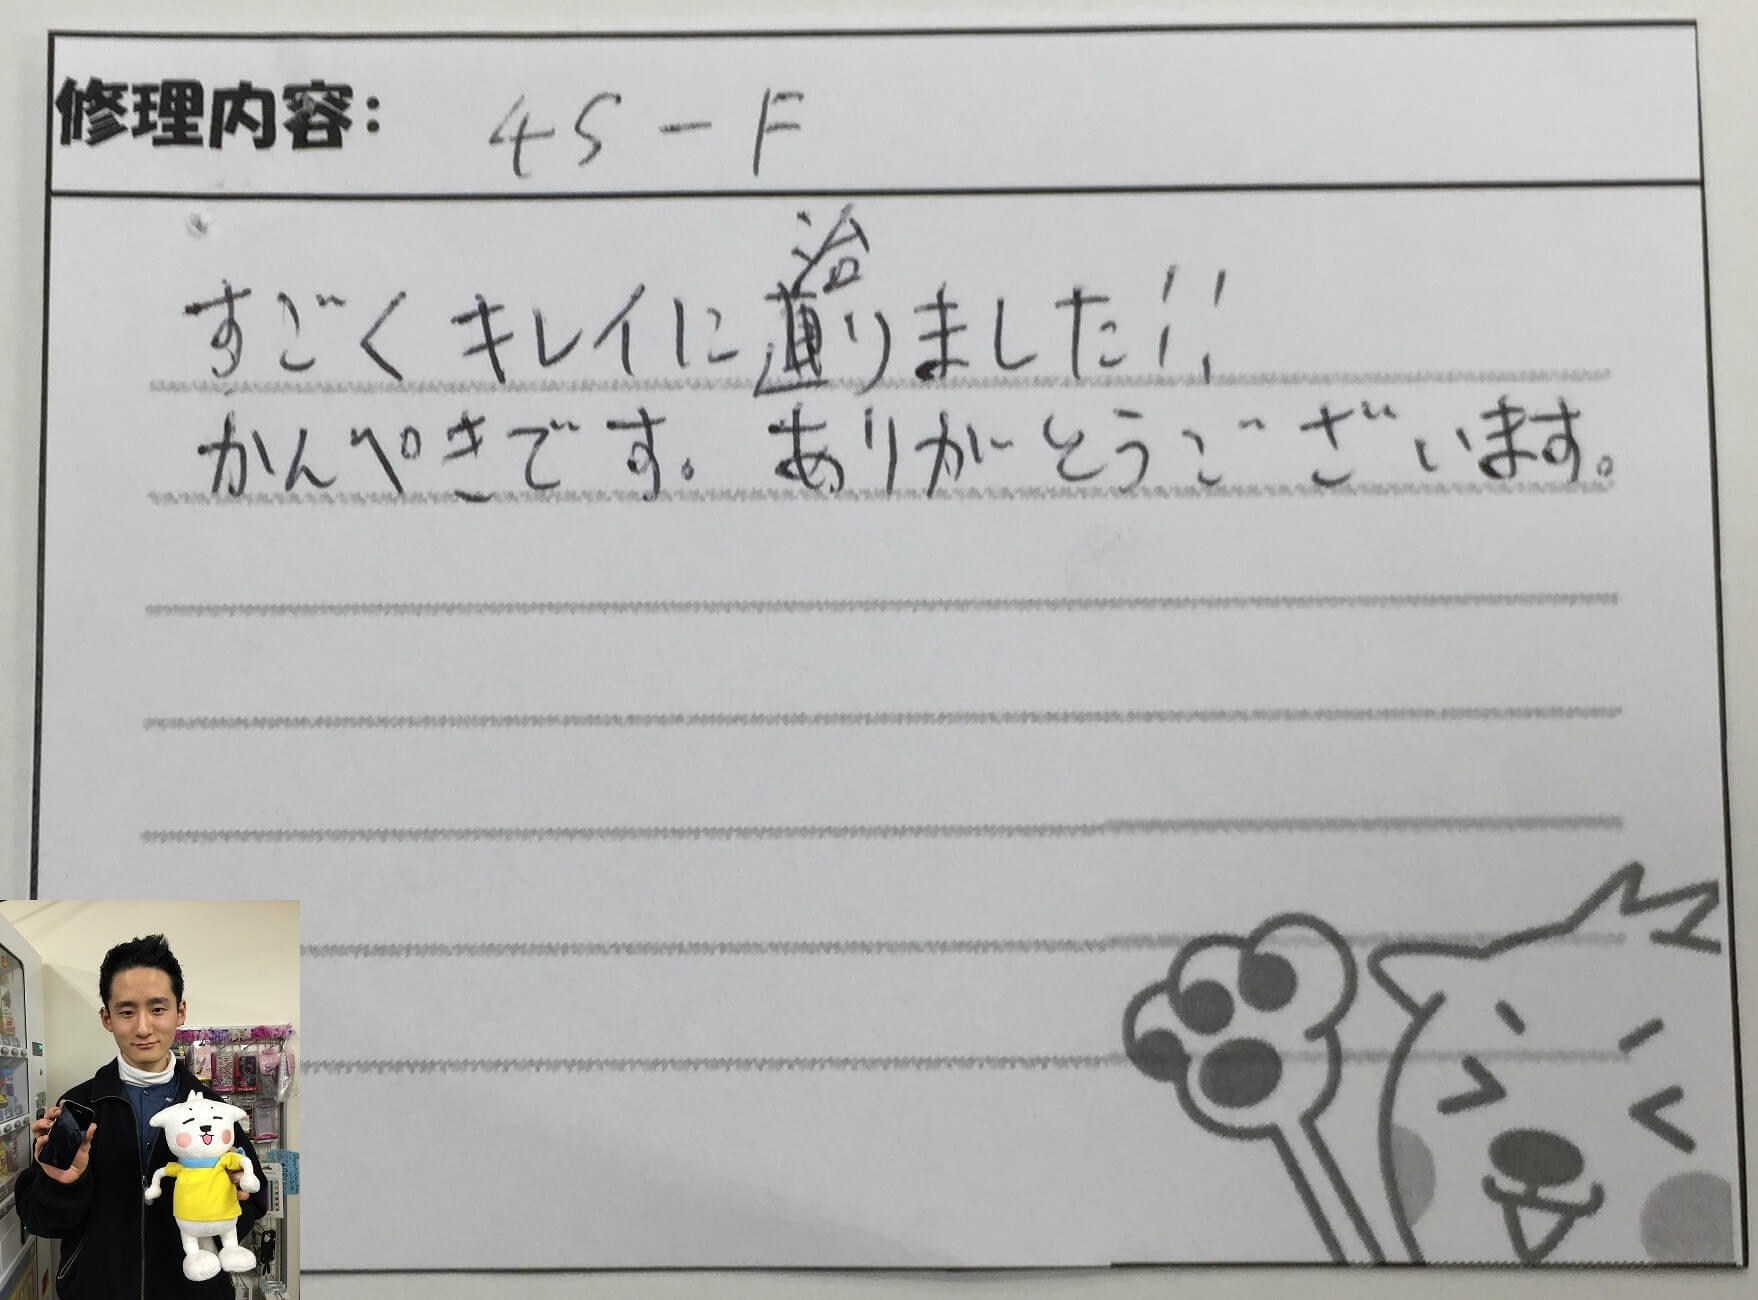 修理内容: 4S-F
すごくキレイに治りました!!
かんぺきです。ありがとうございます。